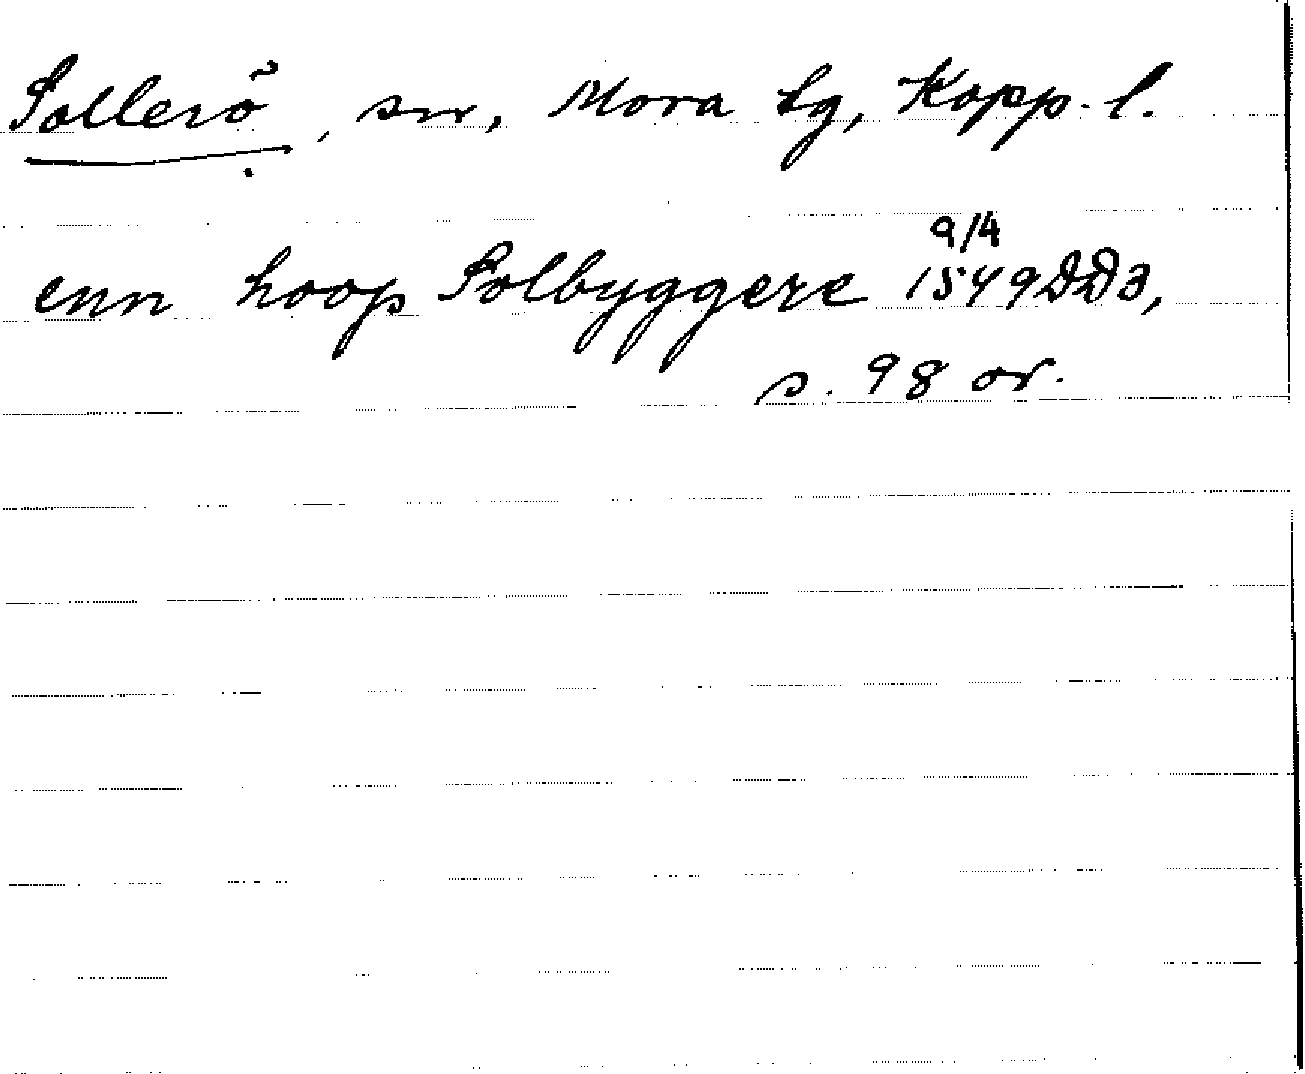 Sollerö, sn, Mora tg, Kopp. l.
9/4
enn hoop Solbyggere 1549 DD3,
s. 98 or.